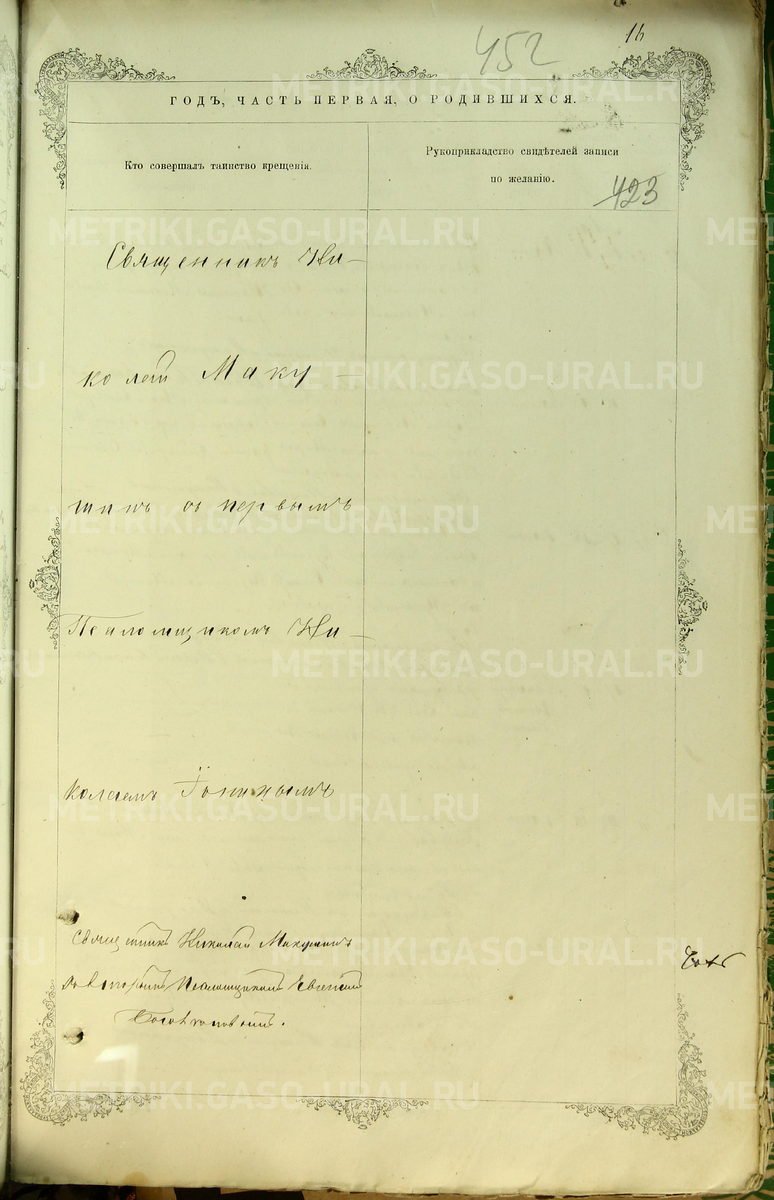 16
452
ГОДЪ, ЧАСТЬ ПЕРВАЯ, О РОДИВШИХСЯ.
Кто совершалъ таинство крещенія.
Рукоприкладство свидѣтелей записи
по желанію.
423
Священникъ Ни-
колай Маку-
шинъ съ первымъ
Псаломщикомъ Ни-
колаемъ
Священникъ Николай Макушинъ
со вторымъ Псаломщикомъ Евгеніемъ
METRIKI.GASO-URAL.RU